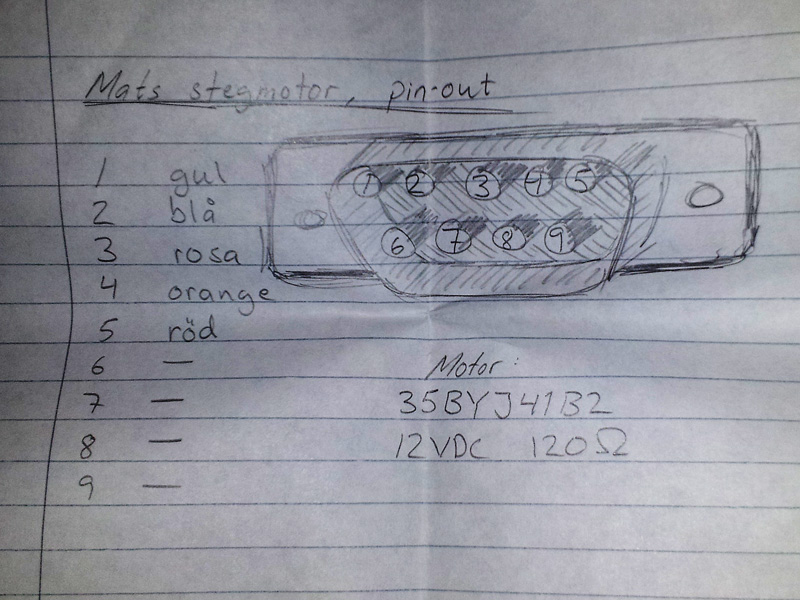 Mats stegmotor, pin-out
1 gul
2 blå
3 rosa
4 orange
5 röd
6 —
7 —
8 —
9 —
1 2 3 4 5
6 7 8 9
Motor:
35BYJ41B2
12VDC 120Ω